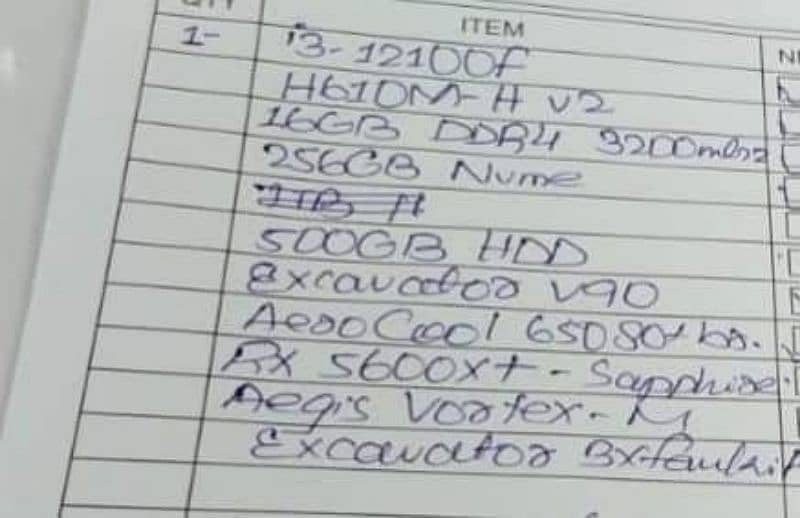 QTY ITEM
1- i3-12100f
H610M-H v2
16GB DDR4 3200mhz
256GB Nvme
1TB H
500GB HDD
Excavator V90
AeroCool 650 80+
RX 5600xt - Sapphire
Aegis Vortex - M
Excavator 3x